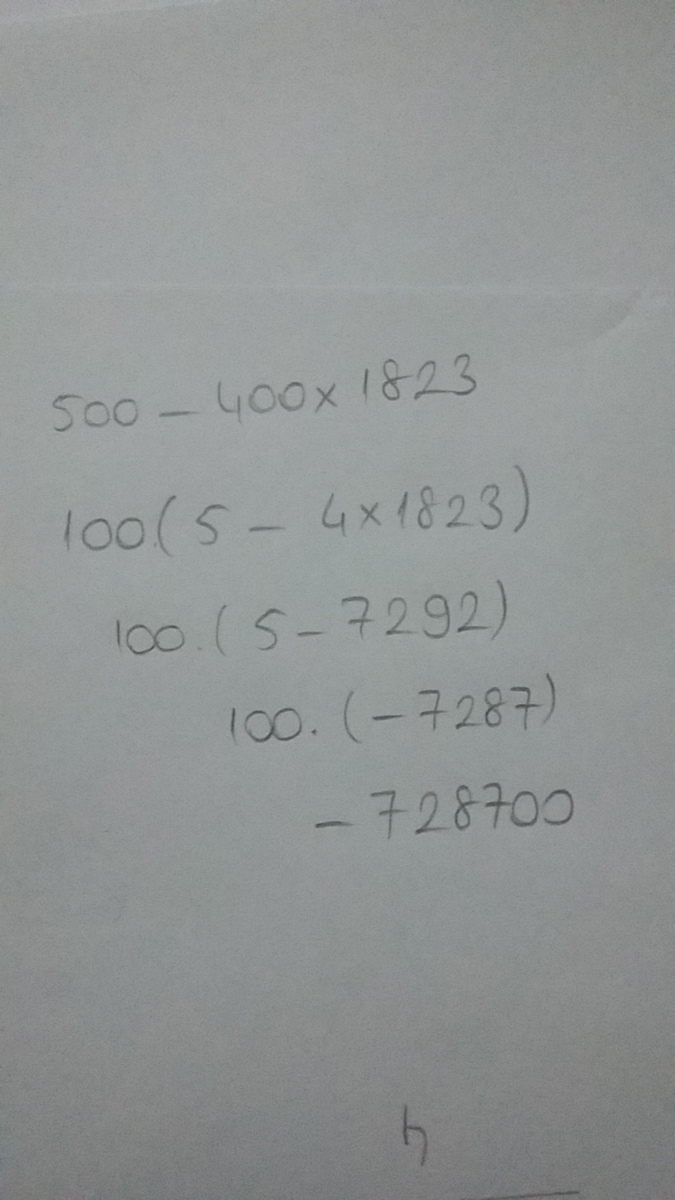 500 - 400x 1823
100.( 5 - 4x1823)
100.( 5 - 7292)
100. (-7287)
- 728700